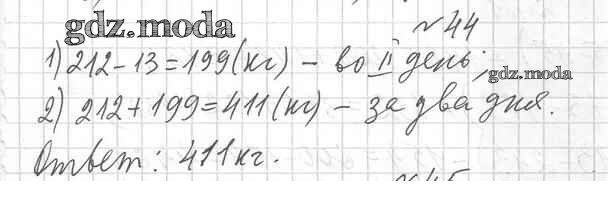 gdz.moda
№44
1) 212-13=199(кг) - во II день;
gdz.moda
2) 212+199=411(кг) - за два дня.
Ответ: 411кг.
№45